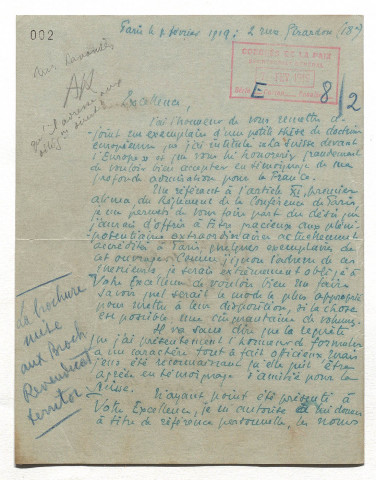 002
Paris le 7 février 1919 : 2 rue Girardon (18e)
CONGRÈS DE LA PAIX
E 8/2
Excellence,
J'ai l'honneur de vous remettre ci-
joint un exemplaire d'une petite thèse de doctrine
européenne que j'ai intitulée « La Suisse devant
l'Europe » et que vous m'honoreriez grandement
de vouloir bien accepter en témoignage de ma
profonde admiration pour la France.
Me référant à l'article XI, premier
alinéa du Règlement de la Conférence de Paris
je me permets de vous faire part du désir que
j'aurais d'offrir à titre gracieux aux pléni-
potentiaires extraordinaires actuellement
accrédités à Paris, quelques exemplaires de
cet ouvrage. Comme j'ignore
je serais extrêmement obligé à
Votre Excellence de vouloir bien me faire
savoir quel serait le mode le plus approprié
pour mettre à leur disposition, si la chose
est possible, une cinquantaine de volumes.
Il va sans dire que la requête
que j'ai présentement l'honneur de formuler
a un caractère tout à fait officieux mais
je serais reconnaissant qu'elle puisse être
agréée en témoignage d'amitié pour la
Suisse.
N'ayant point été présenté à
Votre Excellence, je m'autorise à lui donner
à titre de référence personnelle, les noms
la brochure
mise
aux Broch.
Revendicat.
territor.